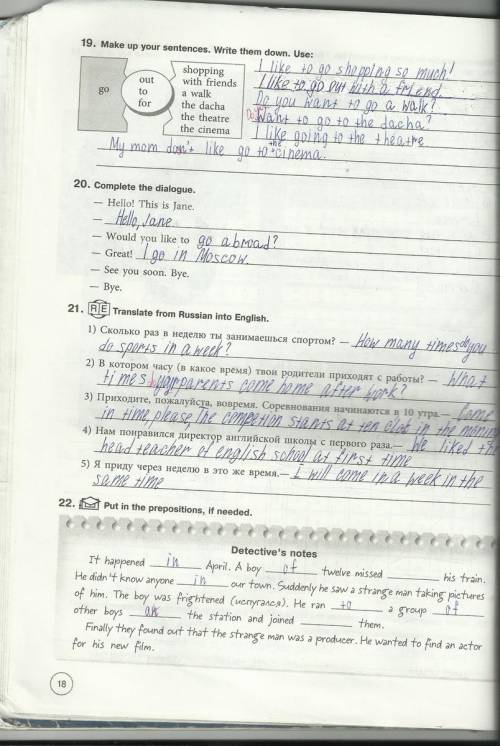 19. Make up your sentences. Write them down. Use:
go
out
to
for
shopping
with friends
a walk
the dacha
the theatre
the cinema
I like to go shopping so much!
I like to go out with a friend
Do you want to go a walk?
Do you want to go to the dacha?
I like going to the theatre
My mom don't like go to the cinema.
20. Complete the dialogue.
— Hello! This is Jane.
— Hello, Jane
— Would you like to go abroad?
— Great! I go in Moscow.
— See you soon. Bye.
— Bye.
21. R E Translate from Russian into English.
1) Сколько раз в неделю ты занимаешься спортом? — How many times do you
do sports in a week?
2) В котором часу (в какое время) твои родители приходят с работы? — What
times your parents come home after work?
3) Приходите, пожалуйста, вовремя. Соревнования начинаются в 10 утра.— Come
in time please, The competion starts at ten clob in the morning
4) Нам понравился директор английской школы с первого раза.— We liked the
head teacher of english school at first time
5) Я приду через неделю в это же время.— I will come in a week in the
same time
22. Put in the prepositions, if needed.
Detective's notes
It happened in April. A boy of twelve missed his train.
He didn't know anyone in our town. Suddenly he saw a strange man taking pictures
of him. The boy was frightened (испугался). He ran to a group of
other boys the station and joined them.
Finally they found out that the strange man was a producer. He wanted to find an actor
for his new film.
18